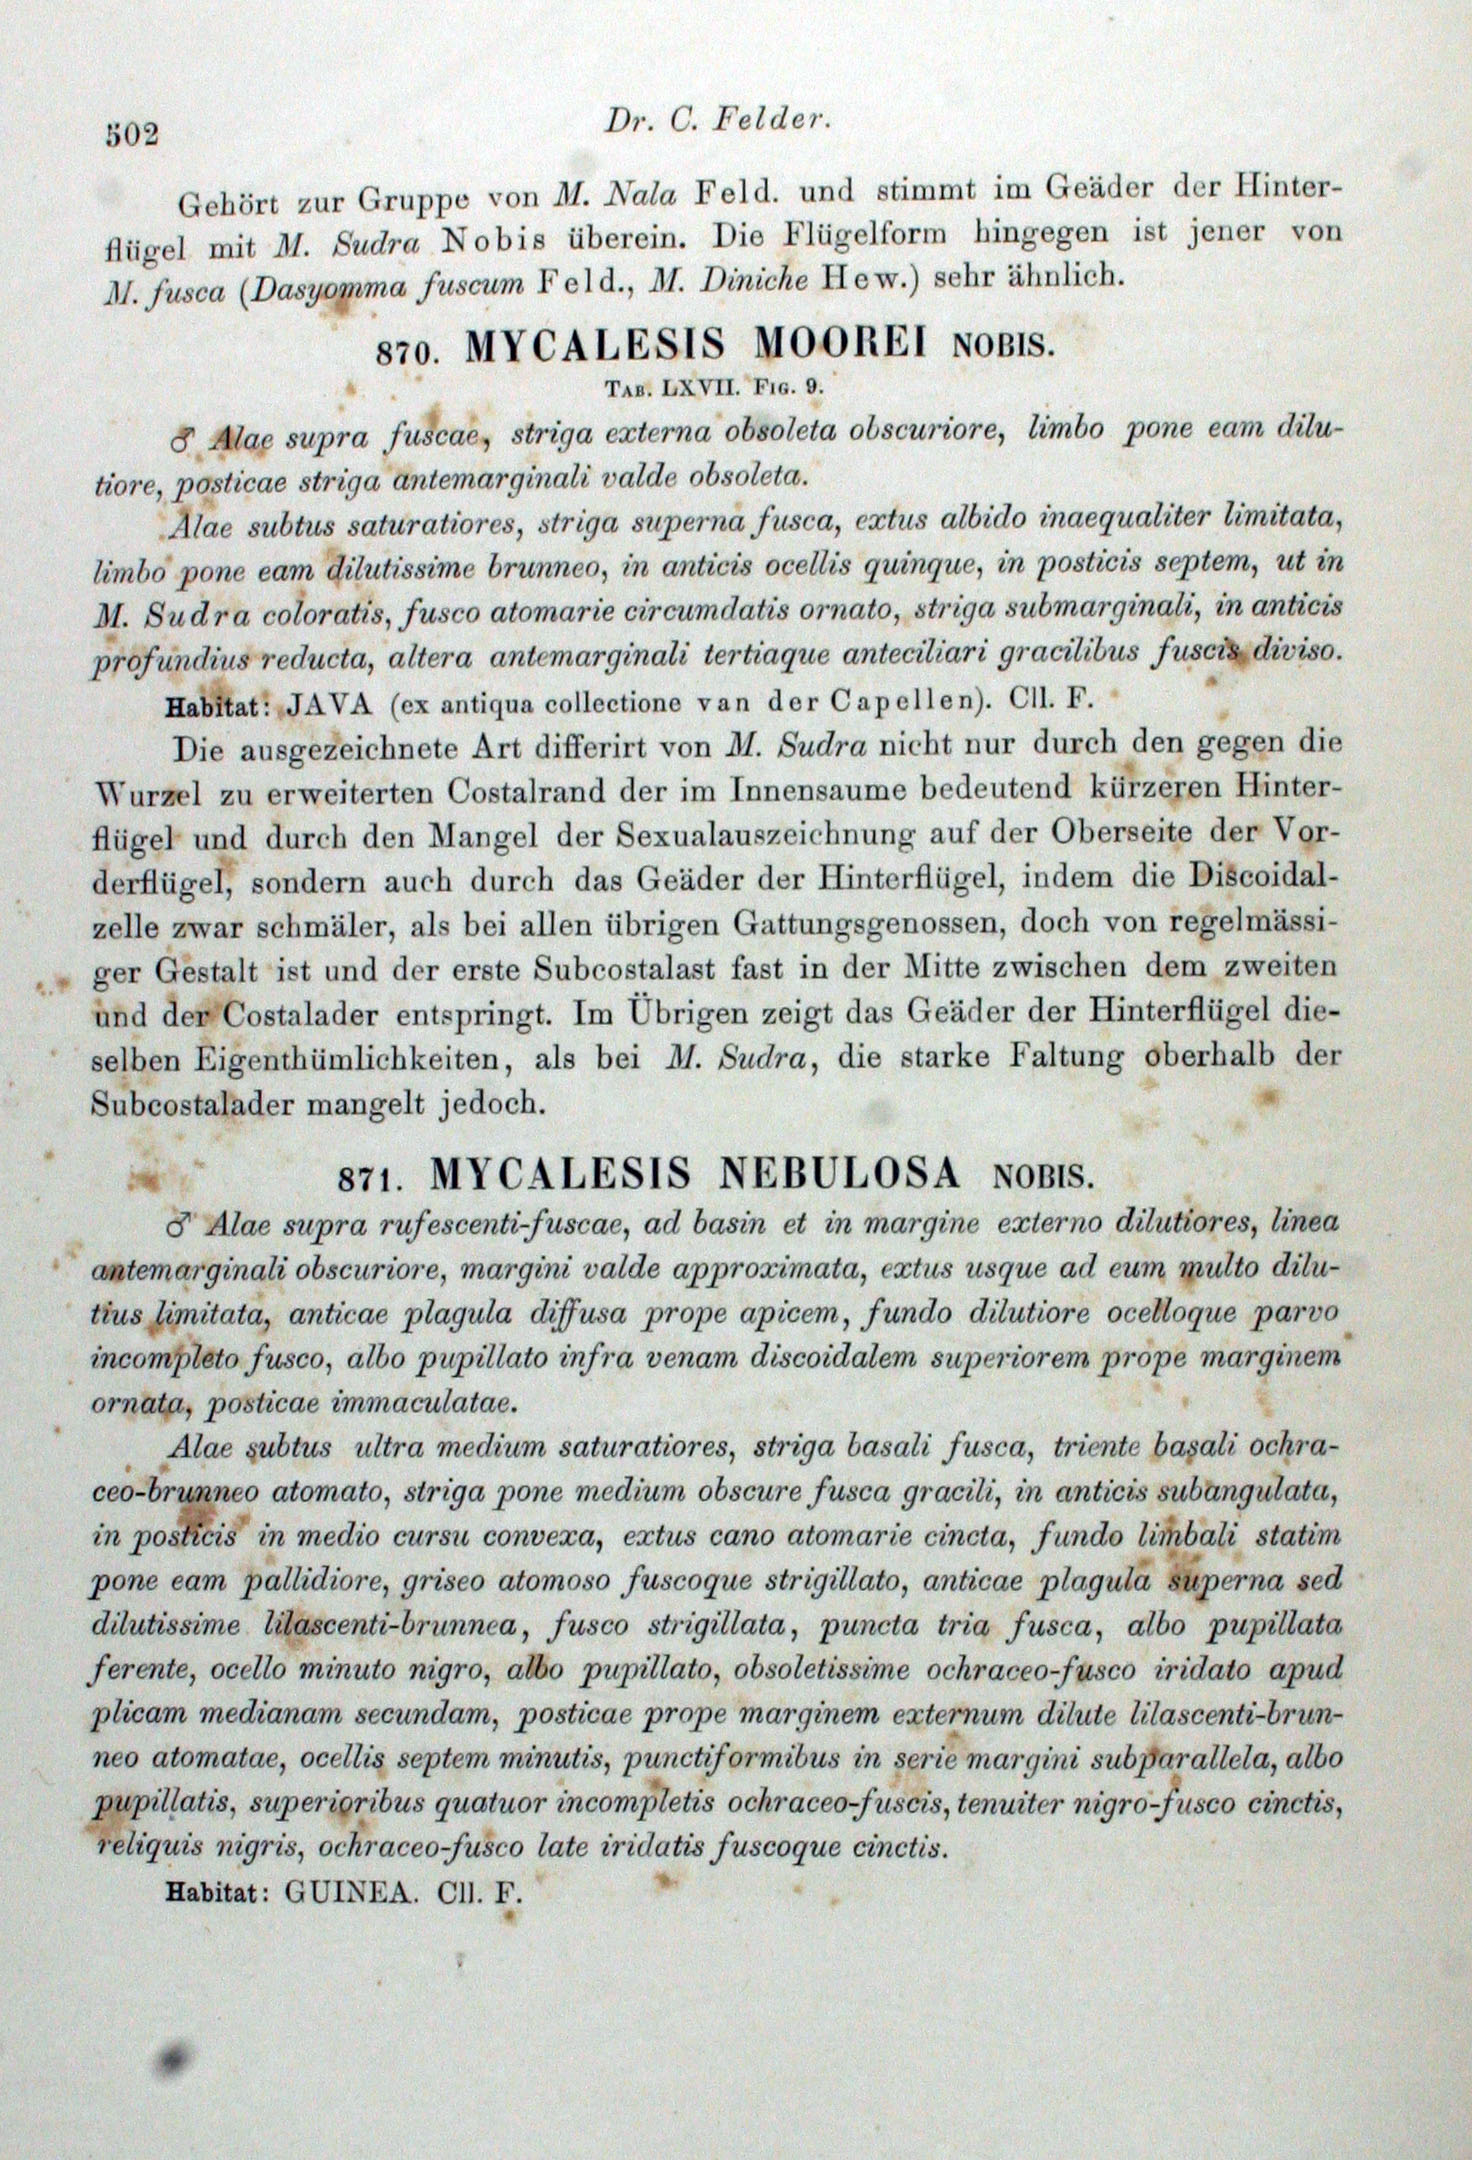 502
Dr. C. Felder.
Gehört zur Gruppe von M. Nala Feld. und stimmt im Geäder der Hinter-
flügel mit M. Sudra Nobis überein. Die Flügelform hingegen ist jener von
M. fusca (Dasyomma fuscum Feld., M. Diniche Hew.) sehr ähnlich.
870. MYCALESIS MOOREI NOBIS.
TAB. LXVII. FIG. 9.
♂ Alae supra fuscae, striga externa obsoleta obscuriore, limbo pone eam dilu-
tiore, posticae striga antemarginali valde obsoleta.
Alae subtus saturatiores, striga superna fusca, extus albido inaequaliter limitata,
limbo pone eam dilutissime brunneo, in anticis ocellis quinque, in posticis septem, ut in
M. Sudra coloratis, fusco atomarie circumdatis ornato, striga submarginali, in anticis
profundius reducta, altera antemarginali tertiaque anteciliari gracilibus fuscis diviso.
Habitat: JAVA (ex antiqua collectione van der Capellen). Cll. F.
Die ausgezeichnete Art differirt von M. Sudra nicht nur durch den gegen die
Wurzel zu erweiterten Costalrand der im Innensaume bedeutend kürzeren Hinter-
flügel und durch den Mangel der Sexualauszeichnung auf der Oberseite der Vor-
derflügel, sondern auch durch das Geäder der Hinterflügel, indem die Discoidal-
zelle zwar schmäler, als bei allen übrigen Gattungsgenossen, doch von regelmässi-
ger Gestalt ist und der erste Subcostalast fast in der Mitte zwischen dem zweiten
und der Costalader entspringt. Im Übrigen zeigt das Geäder der Hinterflügel die-
selben Eigenthümlichkeiten, als bei M. Sudra, die starke Faltung oberhalb der
Subcostalader mangelt jedoch.
871. MYCALESIS NEBULOSA NOBIS.
♂ Alae supra rufescenti-fuscae, ad basin et in margine externo dilutiores, linea
antemarginali obscuriore, margini valde approximata, extus usque ad eum multo dilu-
tius limitata, anticae plagula diffusa prope apicem, fundo dilutiore ocelloque parvo
incompleto fusco, albo pupillato infra venam discoidalem superiorem prope marginem
ornata, posticae immaculatae.
Alae subtus ultra medium saturatiores, striga basali fusca, triente basali ochra-
ceo-brunneo atomato, striga pone medium obscure fusca gracili, in anticis subangulata,
in posticis in medio cursu convexa, extus cano atomarie cincta, fundo limbali statim
pone eam pallidiore, griseo atomoso fuscoque strigillato, anticae plagula superna sed
dilutissime lilascenti-brunnea, fusco strigillata, puncta tria fusca, albo pupillata
ferente, ocello minuto nigro, albo pupillato, obsoletissime ochraceo-fusco iridato apud
plicam medianam secundam, posticae prope marginem externum dilute lilascenti-brun-
neo atomatae, ocellis septem minutis, punctiformibus in serie margini subparallela, albo
pupillatis, superioribus quatuor incompletis ochraceo-fuscis, tenuiter nigro-fusco cinctis,
reliquis nigris, ochraceo-fusco late iridatis fuscoque cinctis.
Habitat: GUINEA. Cll. F.